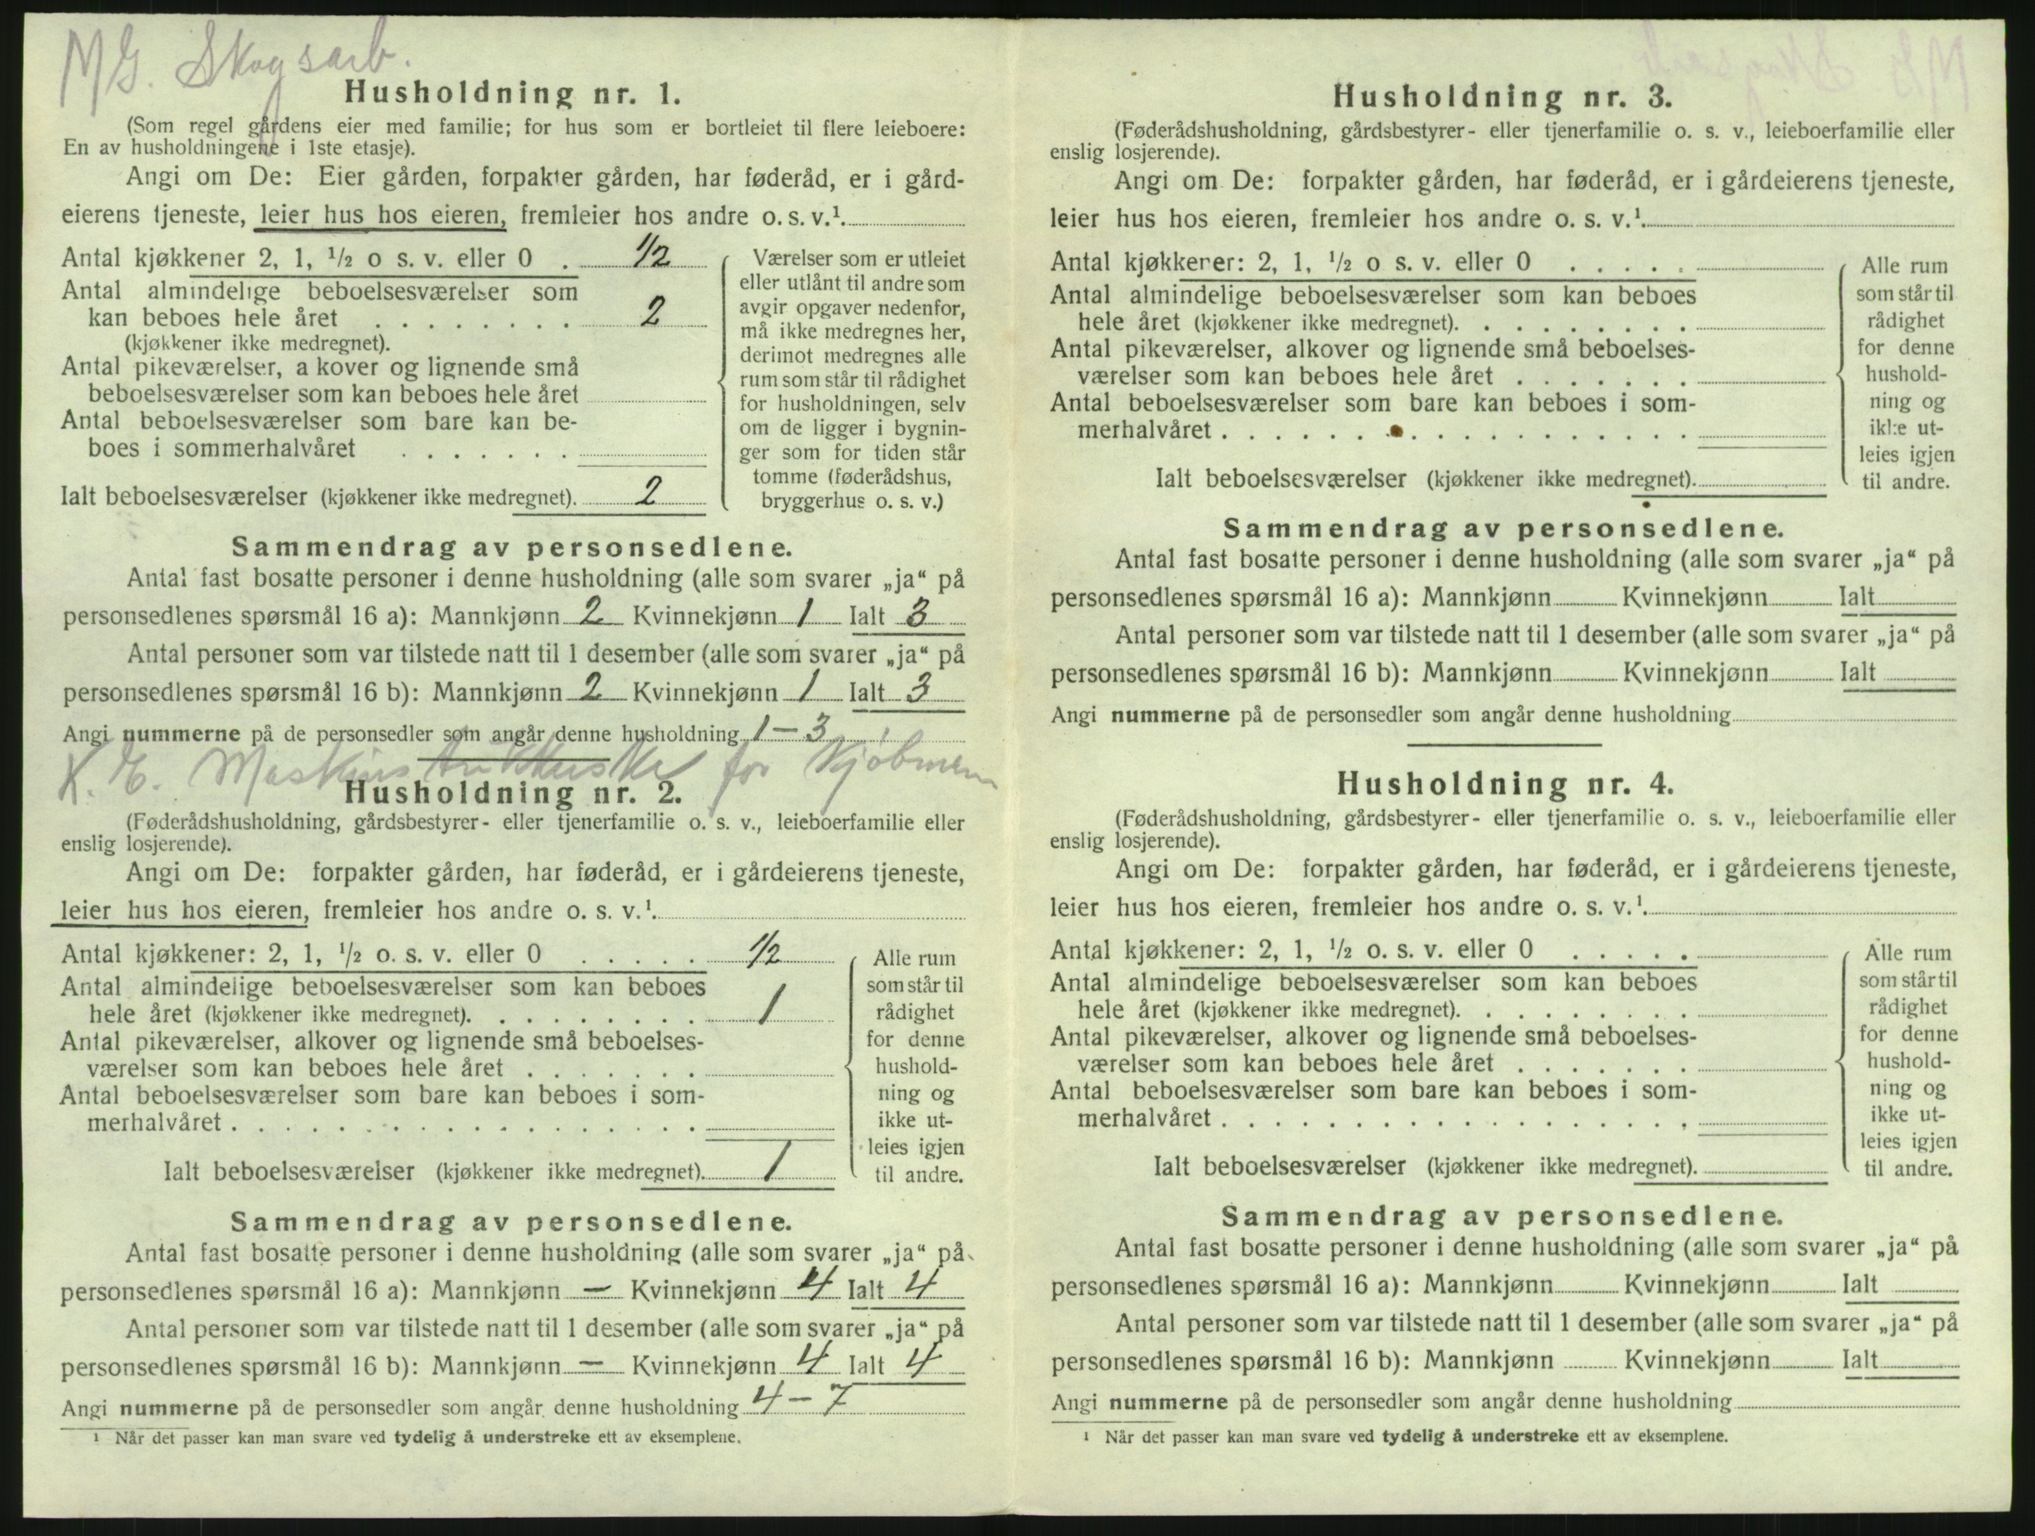 MG. Skogsarb.
Husholdning nr. 1.
(Som regel gårdens eier med familie; for hus som er bortleiet til flere leieboere:
En av husholdningene i 1ste etasje).
Angi om De: Eier gården, forpakter gården, har føderåd, er i gård-
eierens tjeneste, leier hus hos eieren, fremleier hos andre o. s. v.¹
Antal kjøkkener 2, 1, ½ o s. v. eller 0 . 1/2
Antal almindelige beboelsesværelser som
kan beboes hele året . . . . . . . . 2
(kjøkkener ikke medregnet).
Antal pikeværelser, a kover og lignende små
beboelsesværelser som kan beboes hele året
Antal beboelsesværelser som bare kan be-
boes i sommerhalvåret . . . . . . .
Ialt beboelsesværelser (kjøkkener ikke medregnet). 2
Værelser som er utleiet
eller utlånt til andre som
avgir opgaver nedenfor,
må ikke medregnes her,
derimot medregnes alle
rum som står til rådighet
for husholdningen, selv
om de ligger i bygnin-
ger som for tiden står
tomme (føderådshus,
bryggerhus o. s. v.)
Sammendrag av personsedlene.
Antal fast bosatte personer i denne husholdning (alle som svarer „ja“ på
personsedlenes spørsmål 16 a): Mannkjønn 2 Kvinnekjønn 1 Ialt 3
Antal personer som var tilstede natt til 1 desember (alle som svarer „ja“ på
personsedlenes spørsmål 16 b): Mannkjønn 2 Kvinnekjønn 1 Ialt 3
Angi nummerne på de personsedler som angår denne husholdning 1 - 3
K. E. for Kjøbmenn
Husholdning nr. 2.
(Føderådshusholdning, gårdsbestyrer- eller tjenerfamilie o. s. v., leieboerfamilie eller
enslig losjerende).
Angi om De: forpakter gården, har føderåd, er i gårdeierens tjeneste,
leier hus hos eieren, fremleier hos andre o. s. v.¹.
Antal kjøkkener: 2, 1, ½ o. s. v. eller 0 . . . . . 1/2
Antal almindelige beboelsesværelser som kan beboes
hele året (kjøkkener ikke medregnet). . . . . . . . . 1
Antal pikeværelser, alkover og lignende små beboelses-
værelser som kan beboes hele året . . . . . . .
Antal beboelsesværelser som bare kan beboes i som-
merhalvåret . . . . . . . . . . . . . . . . . .
Ialt beboelsesværelser (kjøkkener ikke medregnet). 1
Alle rum
som står til
rådighet
for denne
hushold-
ning og
ikke ut-
leies igjen
til andre.
Sammendrag av personsedlene.
Antal fast bosatte personer i denne husholdning (alle som svarer „ja“ på
personsedlenes spørsmål 16 a): Mannkjønn — Kvinnekjønn 4 Ialt 4
Antal personer som var tilstede natt til 1 desember (alle som svarer „ja“ på
personsedlenes spørsmål 16 b): Mannkjønn — Kvinnekjønn 4 Ialt 4
Angi nummerne på de personsedler som angår denne husholdning 4 - 7
¹ Når det passer kan man svare ved tydelig å understreke ett av eksemplene.
Husholdning nr. 3.
(Føderådshusholdning, gårdsbestyrer- eller tjenerfamilie o. s. v., leieboerfamilie eller
enslig losjerende).
Angi om De: forpakter gården, har føderåd, er i gårdeierens tjeneste,
leier hus hos eieren, fremleier hos andre o. s. v.¹
Antal kjøkkener: 2, 1, ½ o s. v. eller 0 . . . . .
Antal almindelige beboelsesværelser som kan beboes
hele året (kjøkkener ikke medregnet). . . . . . . . .
Antal pikeværelser, alkover og lignende små beboelses-
værelser som kan beboes hele året . . . . . . .
Antal beboelsesværelser som bare kan beboes i som-
merhalvåret . . . . . . . . . . . . . . . . . .
Ialt beboelsesværelser (kjøkkener ikke medregnet).
Alle rum
som står til
rådighet
for denne
hushold-
ning og
ikke ut-
leies igjen
til andre.
Sammendrag av personsedlene.
Antal fast bosatte personer i denne husholdning (alle som svarer „ja“ på
personsedlenes spørsmål 16 a): Mannkjønn Kvinnekjønn Ialt
Antal personer som var tilstede natt til 1 desember (alle som svarer „ja“ på
personsedlenes spørsmål 16 b): Mannkjønn Kvinnekjønn Ialt
Angi nummerne på de personsedler som angår denne husholdning
Husholdning nr. 4.
(Føderådshusholdning, gårdsbestyrer- eller tjenerfamilie o. s. v., leieboerfamilie eller
enslig losjerende).
Angi om De: forpakter gården, har føderåd, er i gårdeierens tjeneste,
leier hus hos eieren, fremleier hos andre o. s. v.¹.
Antal kjøkkener: 2, 1, ½ o. s. v. eller 0 . . . . .
Antal almindelige beboelsesværelser som kan beboes
hele året (kjøkkener ikke medregnet). . . . . . . . .
Antal pikeværelser, alkover og lignende små beboelses-
værelser som kan beboes hele året . . . . . . .
Antal beboelsesværelser som bare kan beboes i som-
merhalvåret . . . . . . . . . . . . . . . . . .
Ialt beboelsesværelser (kjøkkener ikke medregnet).
Alle rum
som står til
rådighet
for denne
hushold-
ning og
ikke ut-
leies igjen
til andre.
Sammendrag av personsedlene.
Antal fast bosatte personer i denne husholdning (alle som svarer „ja“ på
personsedlenes spørsmål 16 a): Mannkjønn Kvinnekjønn Ialt
Antal personer som var tilstede natt til 1 desember (alle som svarer „ja“ på
personsedlenes spørsmål 16 b): Mannkjønn Kvinnekjønn Ialt
Angi nummerne på de personsedler som angår denne husholdning
¹ Når det passer kan man svare ved tydelig å understreke ett av eksemplene.